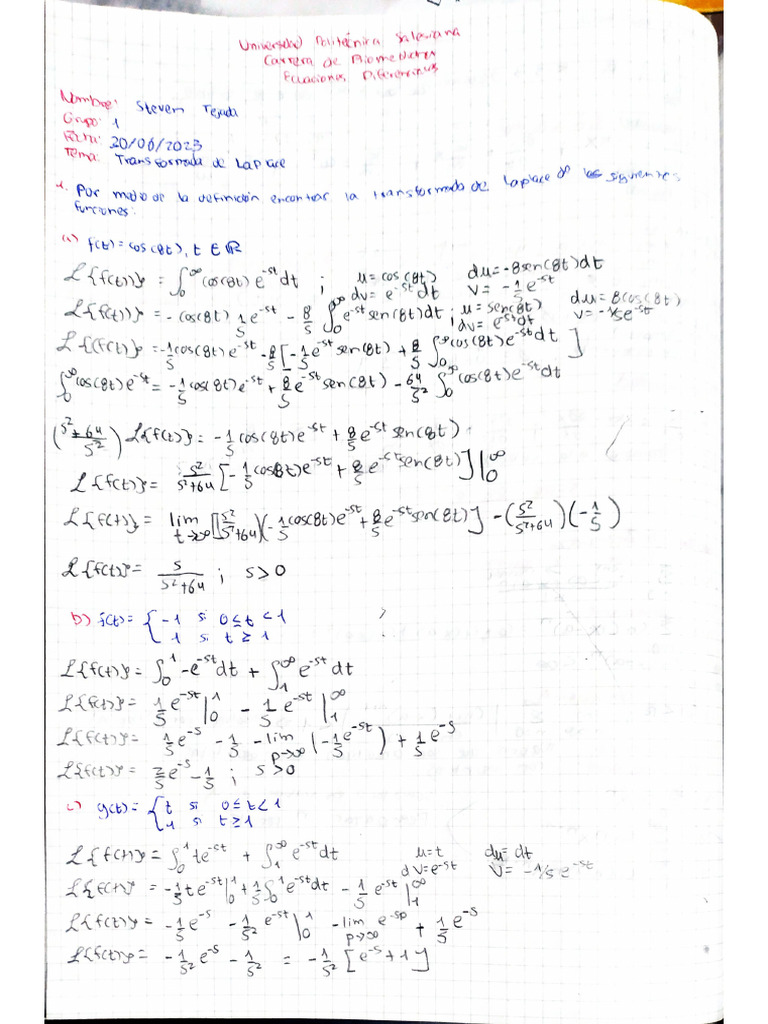 Universidad Politécnica Salesiana
Carrera de Biomedicina
Ecuaciones Diferenciales
Nombre: Steven Tejada
Grupo: 1
Fecha: 20/06/2023
Tema: Transformada de Laplace
1. Por medio de la definición encontrar la transformada de Laplace de las siguientes
funciones:
(a) f(t) = cos(8t), t ∈ ℝ
ℒ{f(t)} = ∫₀^∞ cos(8t) e^-st dt ; u = cos(8t) du = -8sen(8t)dt
dv = e^-st dt v = -1/s e^-st
ℒ{f(t)} = -cos(8t) 1/s e^-st - 8/s ∫₀^∞ e^-st sen(8t)dt ; u = sen(8t) du = 8cos(8t)
dv = e^-st dt v = -1/s e^-st
ℒ{f(t)} = -1/s cos(8t) e^-st - 8/s [-1/s e^-st sen(8t) + 8/s ∫₀^∞ cos(8t) e^-st dt]
∫₀^∞ cos(8t) e^-st = -1/s cos(8t) e^-st + 8/s e^-st sen(8t) - 64/s² ∫₀^∞ cos(8t) e^-st dt
(s²+64/s²) ℒ{f(t)} = -1/s cos(8t) e^-st + 8/s e^-st sen(8t)
ℒ{f(t)} = s²/s²+64 [-1/s cos8t e^-st + 8/s e^-st sen(8t)] |₀^∞
ℒ{f(t)} = lim t→∞ [(s²/s²+64)(-1/s cos(8t) e^-st + 8/s e^-st sen(8t)] - (s²/s²+64)(-1/s)
ℒ{f(t)} = s/s²+64 ; s>0
b) f(t) = { -1 si 0≤t<1
1 si t≥1
ℒ{f(t)} = ∫₀^1 -e^-st dt + ∫₁^∞ e^-st dt
ℒ{f(t)} = 1/s e^-st |₀^1 - 1/s e^-st |₁^∞
ℒ{f(t)} = 1/s e^-s - 1/s - lim p→∞ (-1/s e^-st) + 1/s e^-s
ℒ{f(t)} = 2/s e^-s - 1/s ; s>0
c) g(t) = { t si 0≤t<1
1 si t≥1
ℒ{f(t)} = ∫₀^1 te^-st + ∫₁^∞ e^-st dt u=t du=dt
dv=e^-st v=-1/s e^-st
ℒ{f(t)} = -1/s te^-st |₀^1 + 1/s ∫₀^1 e^-st dt - 1/s e^-st |₁^∞
ℒ{f(t)} = -1/s e^-s - 1/s² e^-st |₀^1 - lim p→∞ e^-sp + 1/s e^-s
ℒ{f(t)} = -1/s² e^-s - 1/s² = -1/s² [e^-s + 1]